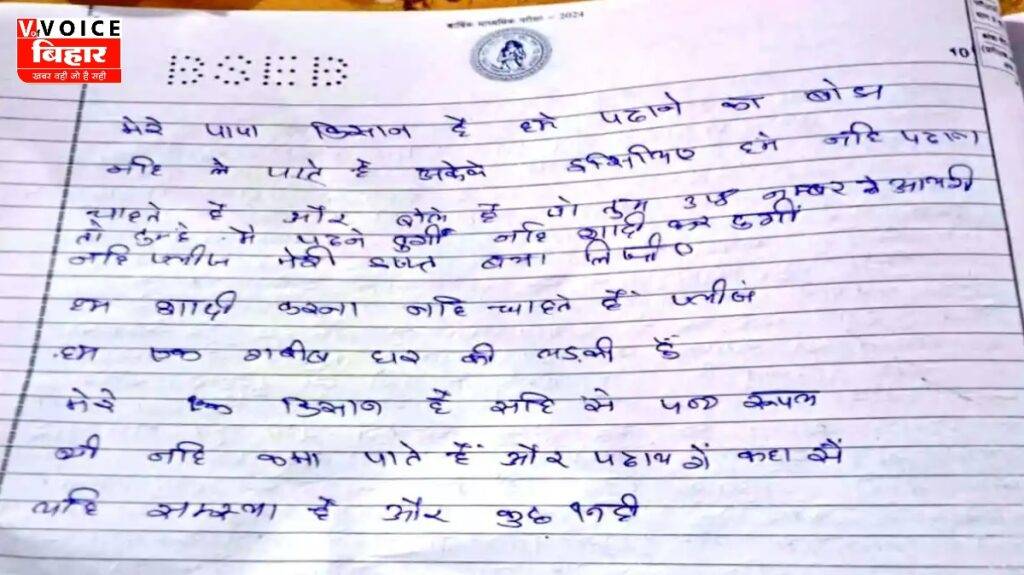 V of VOICE
बिहार
खबर वही जो है सही
वार्षिक माध्यमिक परीक्षा - 2024
BSEB
10
मेरे पापा किसान है हमे पढाने का बोझ
नहि ले पाते है इसिलिए हमे नहि पढाना
चाहते है और बोले है तुम नम्बर से आयगी
तो तुम्हे मे पढने दुगीं नहि शादी कर दुगीं
नहि प्लीज मेरी इज्जत बचा लिजीए
हम शादी करना नहि चाहते हैं प्लीज
हम एक गरीब घर की लडकी हुँ
मेरे किसान है सहि से
भी नहि कमा पाते हैं और पढायगें कहा सें
यहि समस्या है और कुछ नही